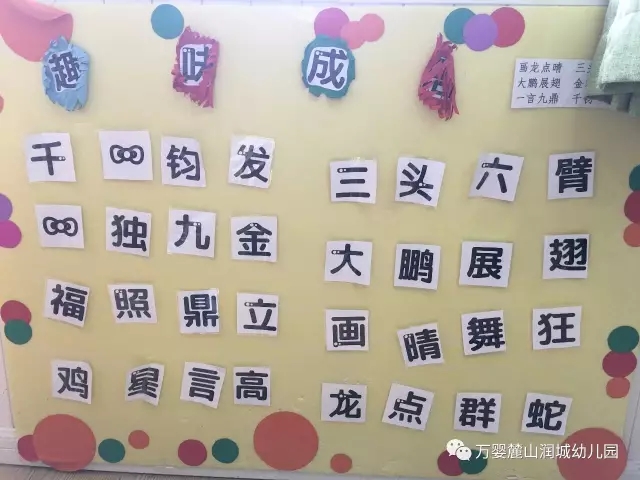 趣味成
画龙点睛 三头
大鹏展翅 金
一言九鼎 千
千钧发 三头六臂
独九金 大鹏展翅
福照鼎立 画晴舞狂
鸡星言高 龙点群蛇
万婴麓山润城幼儿园